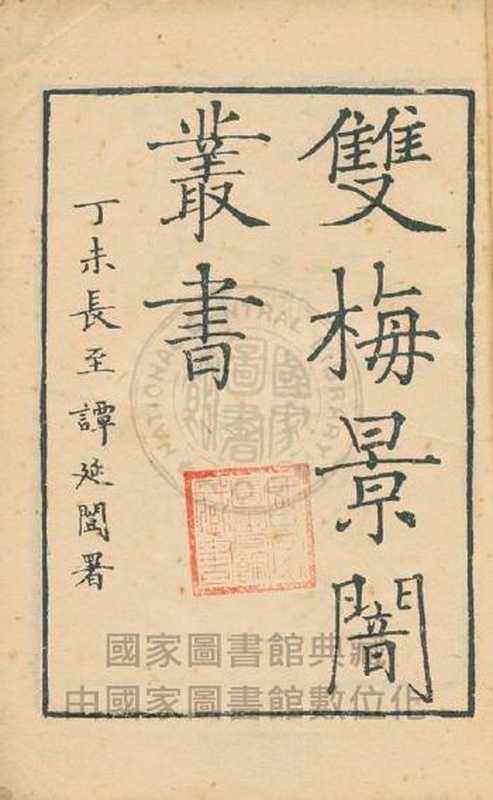 雙梅景闇
叢書
丁未長至譚延闓署
NATIONAL CENTRAL LIBRARY
國家圖書館
國家圖書館典藏
由國家圖書館數位化